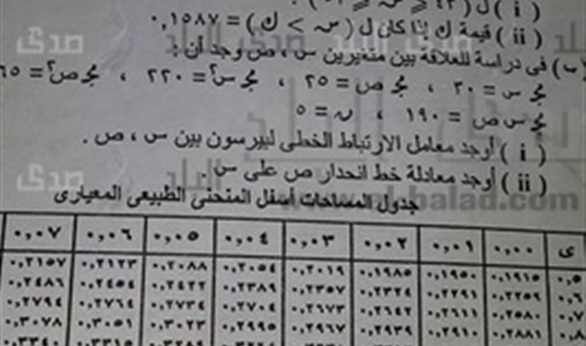 ( ii ) قيمة ك إذا كان ل ( س > ك ) = ٠,١٥٨٧
(ب) فى دراسة للعلاقة بين متغيرين س ، ص وجد أن :
مجـ س = ٢٠ ، مجـ ص = ٢٥ ، مجـ س٢ = ٢٢٠ ، مجـ ص٢ =
مجـ س ص = ١٩٠ ، ن = ٥
( i ) أوجد معامل الارتباط الخطى لبيرسون بين س ، ص .
( ii ) أوجد معادلة خط انحدار ص على س .
جدول المساحات أسفل المنحنى الطبيعى المعيارى
ى ٠,٠٠ ٠,٠١ ٠,٠٢ ٠,٠٣ ٠,٠٤ ٠,٠٥ ٠,٠٦ ٠,٠٧
٠,٥ ٠,١٩١٥ ٠,١٩٥٠ ٠,١٩٨٥ ٠,٢٠١٩ ٠,٢٠٥٤ ٠,٢٠٨٨ ٠,٢١٢٣ ٠,٢١٥٧
٠,٢٢٥٩ ٠,٢٢٩١ ٠,٢٣٢٤ ٠,٢٣٥٧ ٠,٢٣٨٩ ٠,٢٤٢٢ ٠,٢٤٥٤ ٠,٢٤٨٦
٠,٢٥٨٠ ٠,٢٦١١ ٠,٢٦٤٢ ٠,٢٦٧٣ ٠,٢٧٠٤ ٠,٢٧٣٤ ٠,٢٧٦٤ ٠,٢٧٩٤
٠,٢٨٨١ ٠,٢٩١٠ ٠,٢٩٣٩ ٠,٢٩٦٧ ٠,٢٩٩٥ ٠,٣٠٢٣ ٠,٣٠٥١ ٠,٣٠٧٨